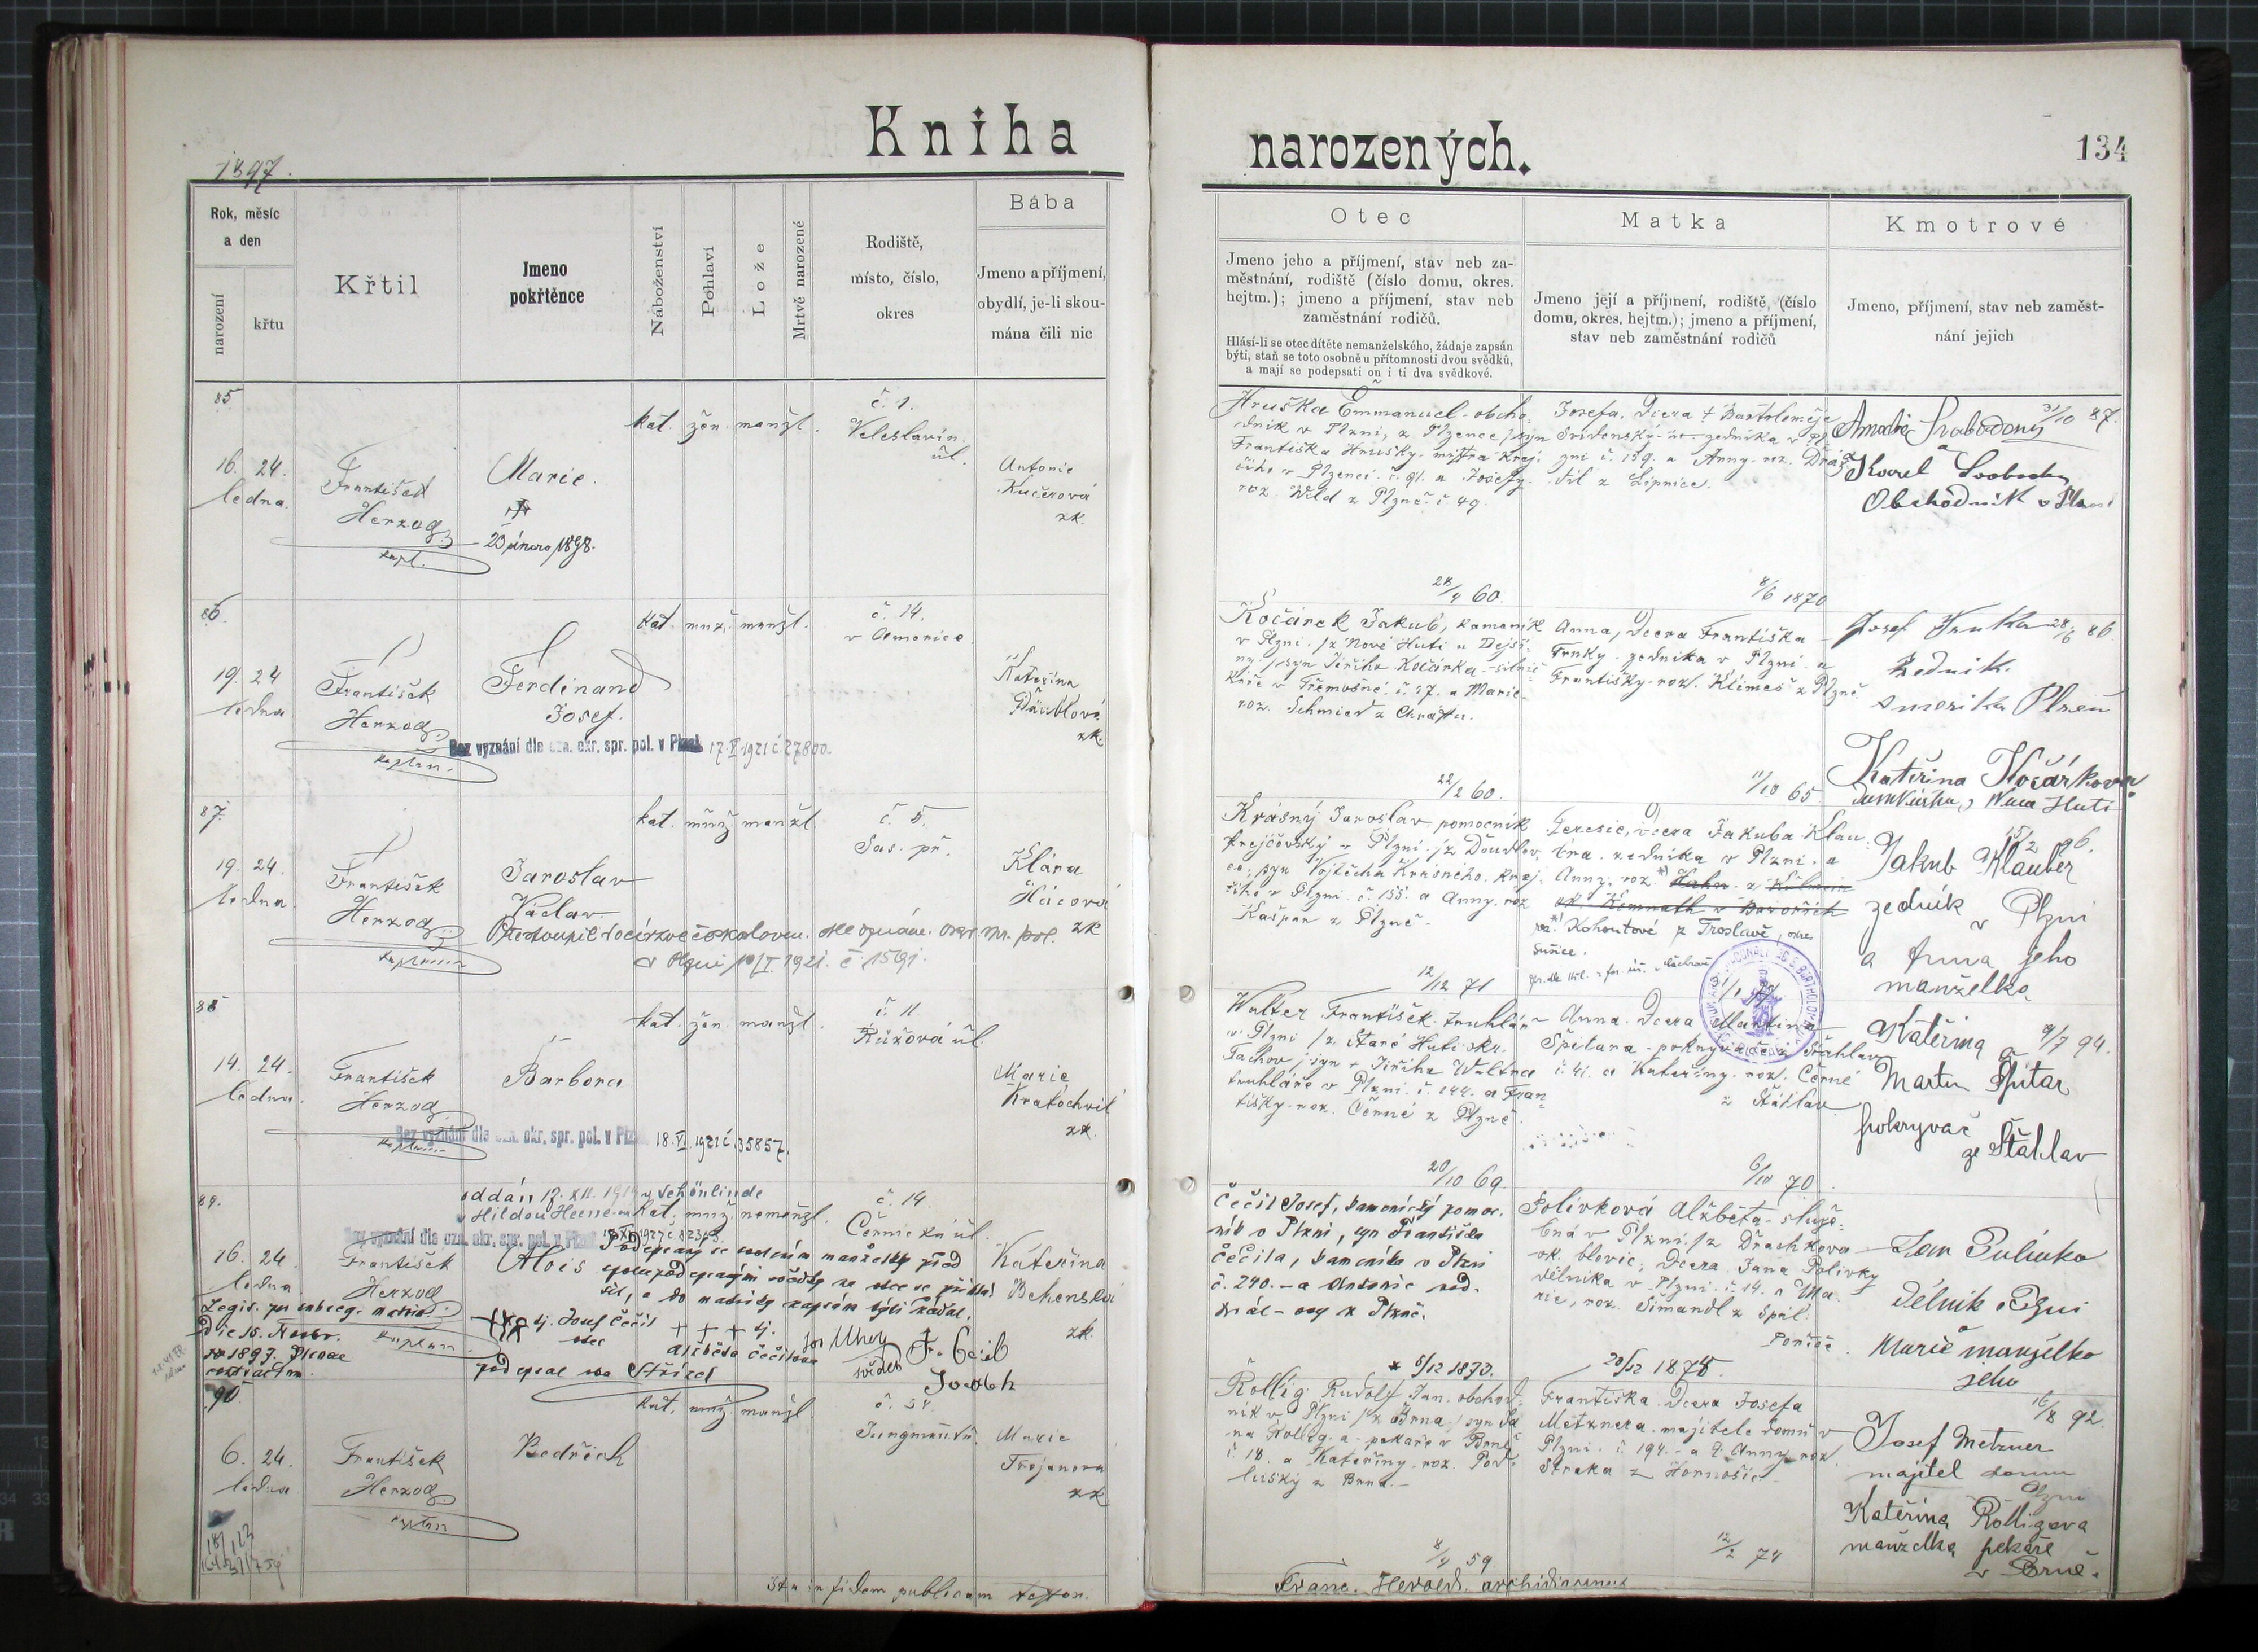 Kniha
narozených.
134
1897.
Rok, měsíc
a den
narození
křtu
Křtil
Jmeno
pokřtěnce
Náboženství
Pohlaví
Lože
Mrtvě narozené
Rodiště,
místo, číslo,
okres
Bába
Jmeno a příjmení,
obydlí, je-li skou-
mána čili nic
Otec
Jmeno jeho a příjmení, stav neb za-
městnání, rodiště (číslo domu, okres.
hejtm.); jmeno a příjmení, stav neb
zaměstnání rodičů.
Hlásí-li se otec dítěte nemanželského, žádaje zapsán
býti, staň se toto osobně u přítomnosti dvou svědků,
a mají se podepsati on i ti dva svědkové.
Matka
Jmeno její a příjmení, rodiště, (číslo
domu, okres. hejtm.); jmeno a příjmení,
stav neb zaměstnání rodičů
Kmotrové
Jmeno, příjmení, stav neb zaměst-
nání jejich
85
16. 24.
ledna.
František
Herzog
kapl.
Marie.
23 února 1898.
kat. žen. manžl.
č. 1.
Veleslavín.
úl.
Antonie
Kučerová
zk.
Hruška Emmanuel - obcho-
dník v Plzni, z Plzence, syn
Františka Hrušky - mistra krej-
čího v Plzenci č. 91. a Josefy
roz. Wild z Plzně č. 49.
28/4 60.
Josefa, dcera † Bartoloměje
zedníka v Pl-
zni č. 159. a Anny roz.
z Lipnice.
8/6 1870
31/10 87.
Karel Svoboda
Obchodník v Plzni
86
19. 24
ledna
František
Herzog
kaplan.
Ferdinand
Josef.
Bez vyznání dle ozn. okr. spr. pol. v Plzni 17. V. 1921 č. 27800.
kat. muž. manžl.
č. 14.
v Americe.
Kateřina
Däublová
zk.
Kočárek Jakub, kameník
v Plzni /z Nové Huti u Dejši-
ny/ syn Jiřího Kočárka - silni-
káře v Třemošné č. 27. a Marie
roz. Schmied z Chrástu.
22/2 60.
Anna, dcera Františka
Trnky - zedníka v Plzni a
Františky roz. Klimeš z Plzně
11/10 65
Josef Trnka 28/6 86.
Zedník
Amerika Plzeň
Kateřina Kočárková
Nová Huti
87.
19. 24.
ledna.
František
Herzog
kaplan
Jaroslav
Václav
Přestoupil do církve českosloven. dle oznám. okr. spr. pol.
v Plzni 10/I 1921. č. 1591.
kat. muž. manžl.
č. 5.
Sas. př.
Klára
Hácová
zk
Krásný Jaroslav pomocník
krejčovský v Plzni /z Doudlev-
ec/, syn Vojtěcha Krásného, krej-
čího v Plzni č. 155. a Anny roz.
Kašpar z Plzně.
12/12 71
Terezie, dcera Jakuba Klau-
bra - zedníka v Plzni a
Anny, roz. *) Hahn z
ok. Kemnath v Bavořích
*) roz. Kohoutové z Troslavě, okres
Sušice.
15/2 96.
Jakub Klauber
zedník
v Plzni
a Anna jeho
manželka
88
14. 24.
ledna.
František
Herzog
kaplan
Barbora
Bez vyznání dle ozn. okr. spr. pol. v Plzni 18. VI. 1921 č. 35857.
kat. žen. manžl.
č. 11
Růžová úl.
Marie
Kratochvil
zk.
Walter František truhlář
v Plzni /z Staré Huti okr.
Tachov/ syn † Jiřího Waltra
truhláře v Plzni č. 244. a Fran-
tišky roz. Černé z Plzně.
20/10 69.
Anna, dcera Martina
Špitara - pokrývače z Štáhlav
č. 41. a Kateřiny roz. Černé
z Štáhlav
6/10 70
Kateřina a 9/7 94.
Martin Špitar
pokryvač
ze Štáhlav
89.
16. 24
ledna
František
Herzog
kaplan.
oddán 17. XII. 1919 v Schönlinde
s Hildou
Bez vyznání dle ozn. okr. spr. pol. v Plzni
Alois
kat. muž. nemanžl.
č. 14
Černická úl.
Kateřina
Bekenská
zk.
Podepsaný se svolením manželky před
spolupodepsanými svědky za otce se přihlá-
sil, a do matriky zapsán býti žádal.
+++ tj. Josef Čečil +++ tj.
otec Alžběta Čečilova
Legit. per subseq. matrim.
Die 15. Novbr.
1897. Plznae
contractum.
svědek
Čečil Josef, kamenický pomoc-
ník v Plzni, syn Františka
Čečila, kameníka v Plzni
č. 240. - a Antonie roz.
z Plzně.
* 5/12 1873.
Polívková Alžběta - služe-
bná v Plzni /z Drachkova
ok. Blovic, dcera Jana Polívky
dělníka v Plzni č. 14. a Ma-
rie, roz. Šimandl z Spál.
Poříčí.
20/12 1875.
Jan Polívka
dělník v Plzni
a
Marie manželka
jeho
90
6. 24.
ledna
František
Herzog
kaplan
Bedřich
kat. muž. manžl.
č. 34.
Jungmannova
Marie
Trojanova
zk
Rollig Rudolf Jan, obchod-
ník v Plzni /z Brna/ syn Ja-
na Rolliga - pekaře v Brně
č. 18. a Kateřiny roz. Pod-
lušky z Brna.
8/4 59.
Františka, dcera Josefa
Metznera, majitele domu v
Plzni č. 194. a † Anny roz.
Straka z Hornošic
12/2 74
16/8 92.
Josef Metzner
majitel domu
Plzni
Kateřina Rolligova
manželka pekaře
v Brně.
Ita in fidem publicam testor.
Franc. Herold. archidiaconus